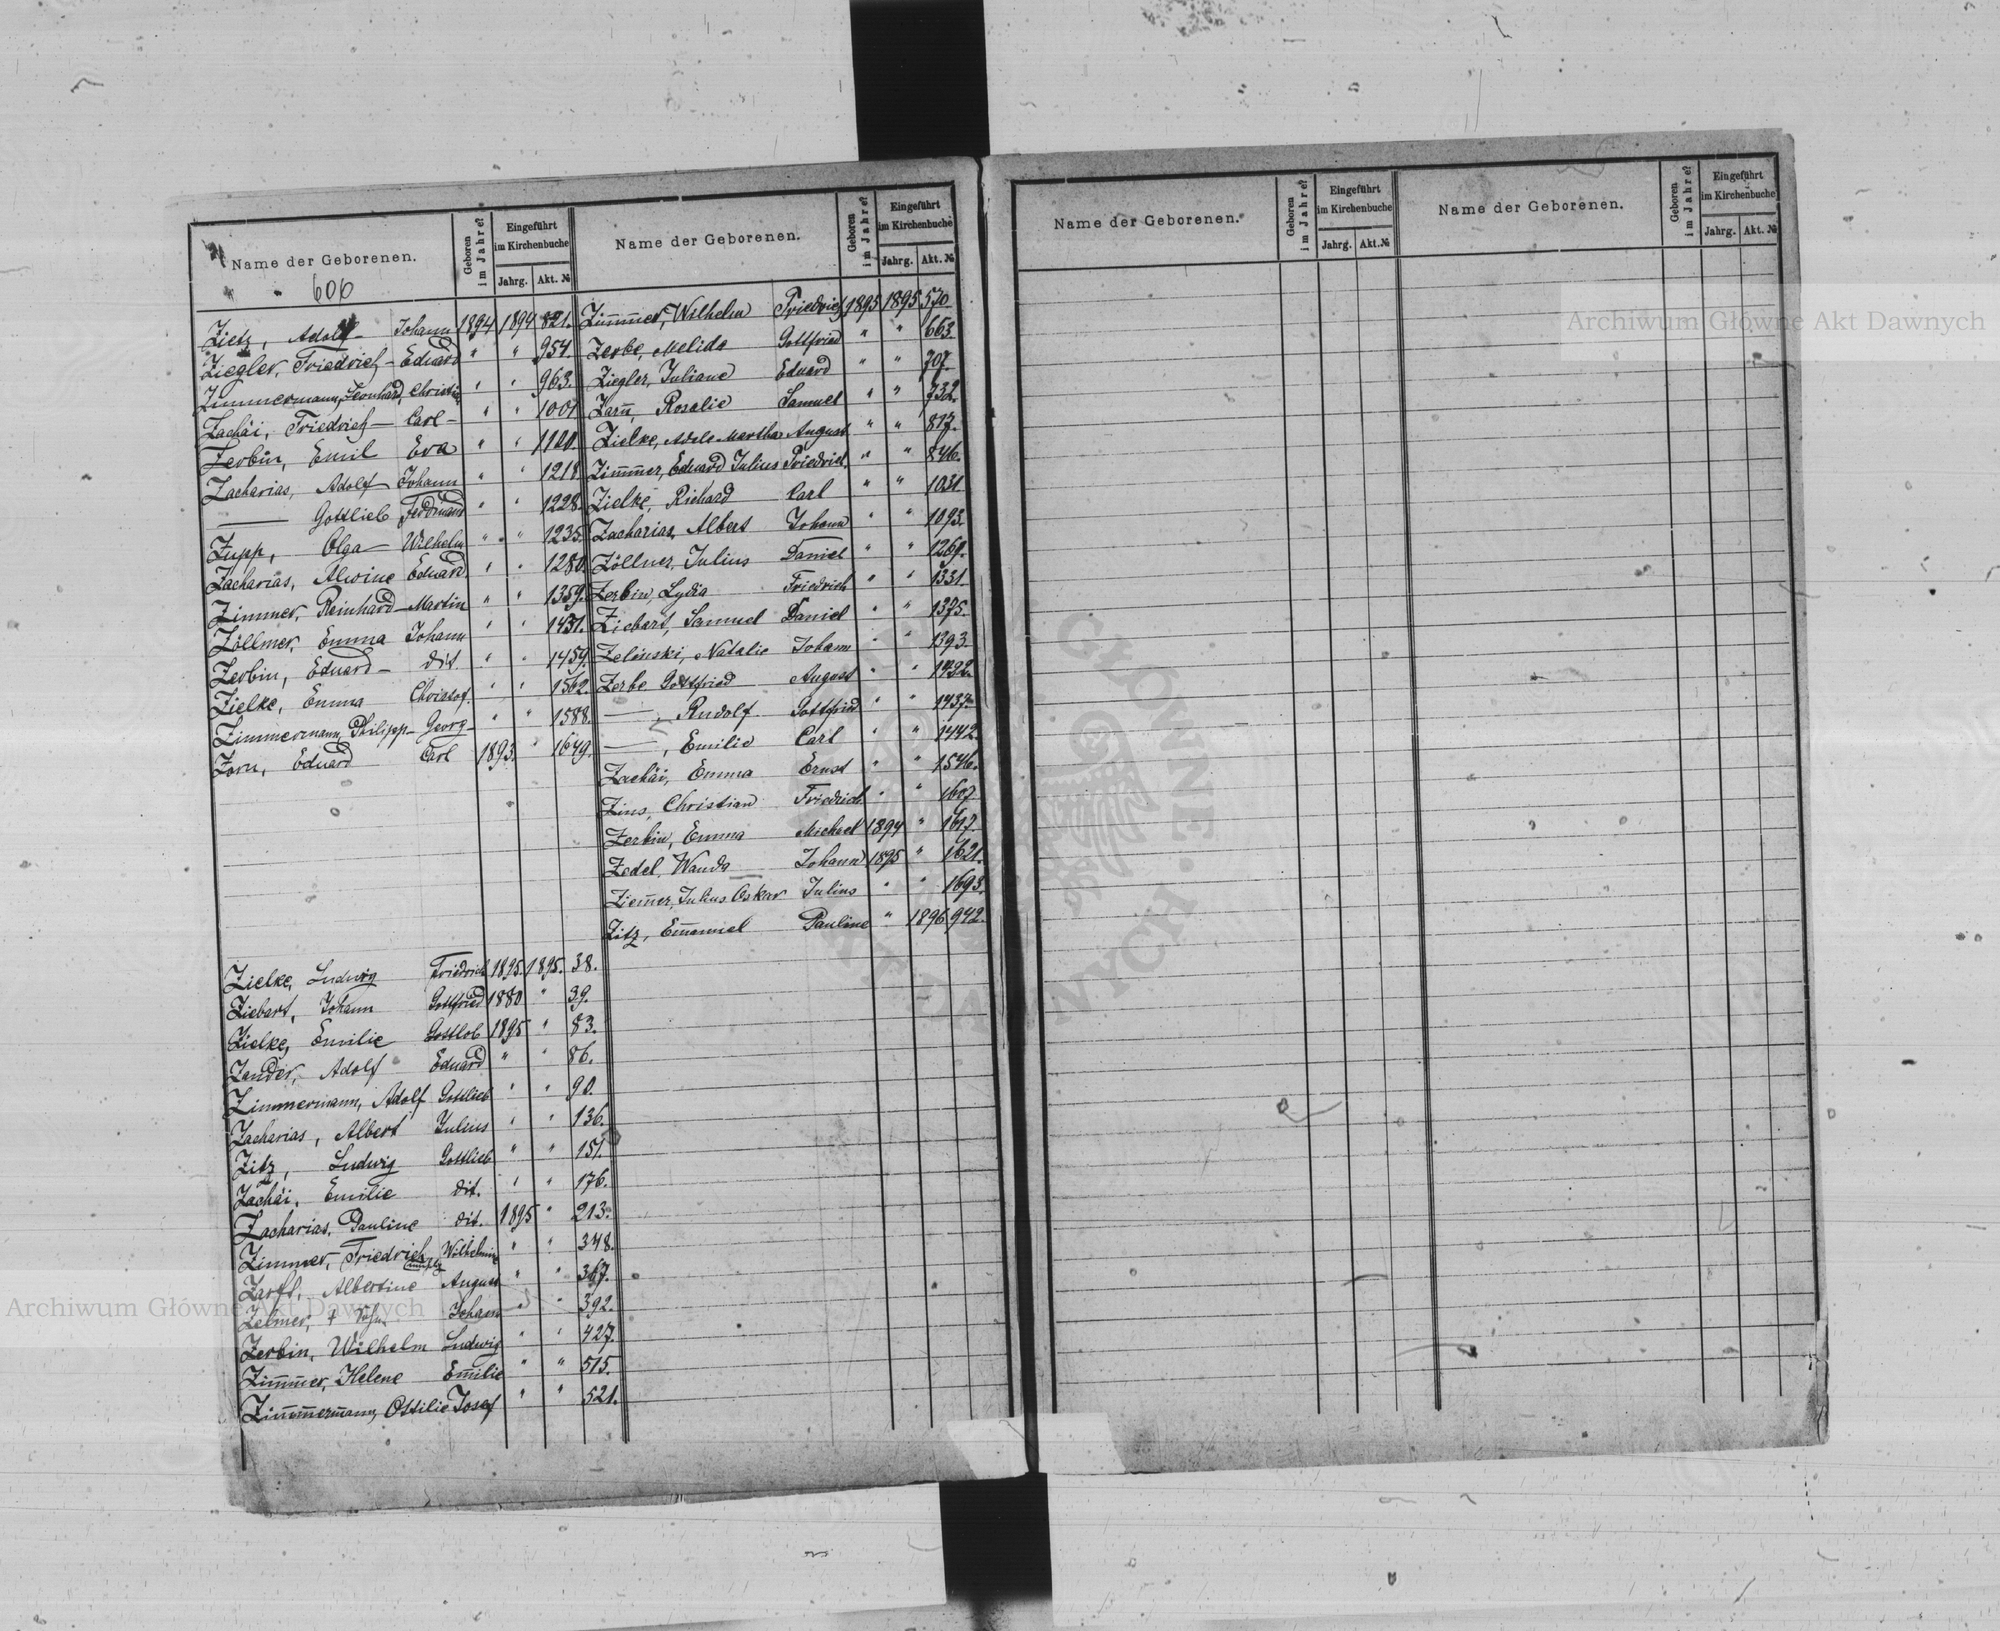 Name der Geborenen. Geboren im Jahre? Eingeführt im Kirchenbuche Jahrg. Akt. №
606
Zietz, Adolf - Johann 1894 1894 821.
Ziegler, Friedrich - Eduard " " 954.
Zimmermann, Leonhard, Christian " " 963.
Zachäi, Friedrich - Carl - " " 1001
Zerbin, Emil Eva " "
Zacharias, Adolf Johann " " 1218.
—— Gottlieb Ferdinand " " 1228.
Zupp, Olga - Wilhelm " " 1235.
Zacharias, Alwine Eduard " " 1280.
Zimmer, Reinhard - Martin " " 1359.
Zöllmer, Emma Johann " " 1431.
Zerbin, Eduard - dit " " 1459.
Zielke, Emma Christof " " 1562.
Zimmermann, Philipp - Georg - " " 1588.
Zorn, Eduard Carl 1893. " 1649.
Zielke, Ludwig Friedrich 1895. 1895. 38.
Ziebart, Johann Gottfried 1880 " 39.
Zielke, Emilie Gottlob 1895 " 83.
Zander, Adolf Eduard " " 86.
Zimmermann, Adolf Gottlieb " " 90.
Zacharias, Albert Julius " " 136.
Zitz, Ludwig Gottlieb " " 151.
Zachäi, Emilie dit. " " 176.
Zacharias, Pauline dit. 1895 " 213.
Zimmer, Friedrich Wilhelmine " " 348.
Zarft, Albertine August " " 367.
Zelmer, † Johann " " 392.
Zerbin, Wilhelm Ludwig " " 427.
Zim̅m̅er, Helene Emilie " " 515.
Zim̅m̅ermann, Ottilie Josef " " 521.
Name der Geborenen. Geboren im Jahre? Eingeführt im Kirchenbuche Jahrg. Akt. №
Zim̅m̅er, Wilhelm Friedrich 1895 1895 570
Zerbe, Melida Gottfried " " 663.
Ziegler, Juliane Eduard " " 707.
Rosalie Samuel " " 732.
Zielke, Adele Martha August " " 817.
Zim̅m̅er, Eduard Julius Friedrich " " 846.
Zielke, Richard Carl " " 1031
Zacharias, Albert Johann " " 1093.
Zöllner, Julius Daniel " " 1260.
Zerbin, Lydia Friedrich " " 1331.
Ziebart, Samuel Daniel " " 1375.
Zelinski, Natalie Johann " " 1393.
Zerbe, Gottfried August " " 1432.
——, Rudolf Gottfried " " 1437.
——, Emilie Carl " " 1442.
Zachäi, Emma Ernst " " 1546.
Zins, Christian Friedrich " " 1607
Zerbin, Emma Michael 1894 " 1617.
Zedel, Wanda Johann 1895 " 1621.
Ziem̅er, Julius Oskar Julius " " 1693.
Zitz, Emanuel Pauline " 1896 942.
Name der Geborenen. Geboren im Jahre? Eingeführt im Kirchenbuche Jahrg. Akt. №
Name der Geborenen. Geboren im Jahre? Eingeführt im Kirchenbuche Jahrg. Akt. №
Archiwum Główne Akt Dawnych
Archiwum Główne Akt Dawnych